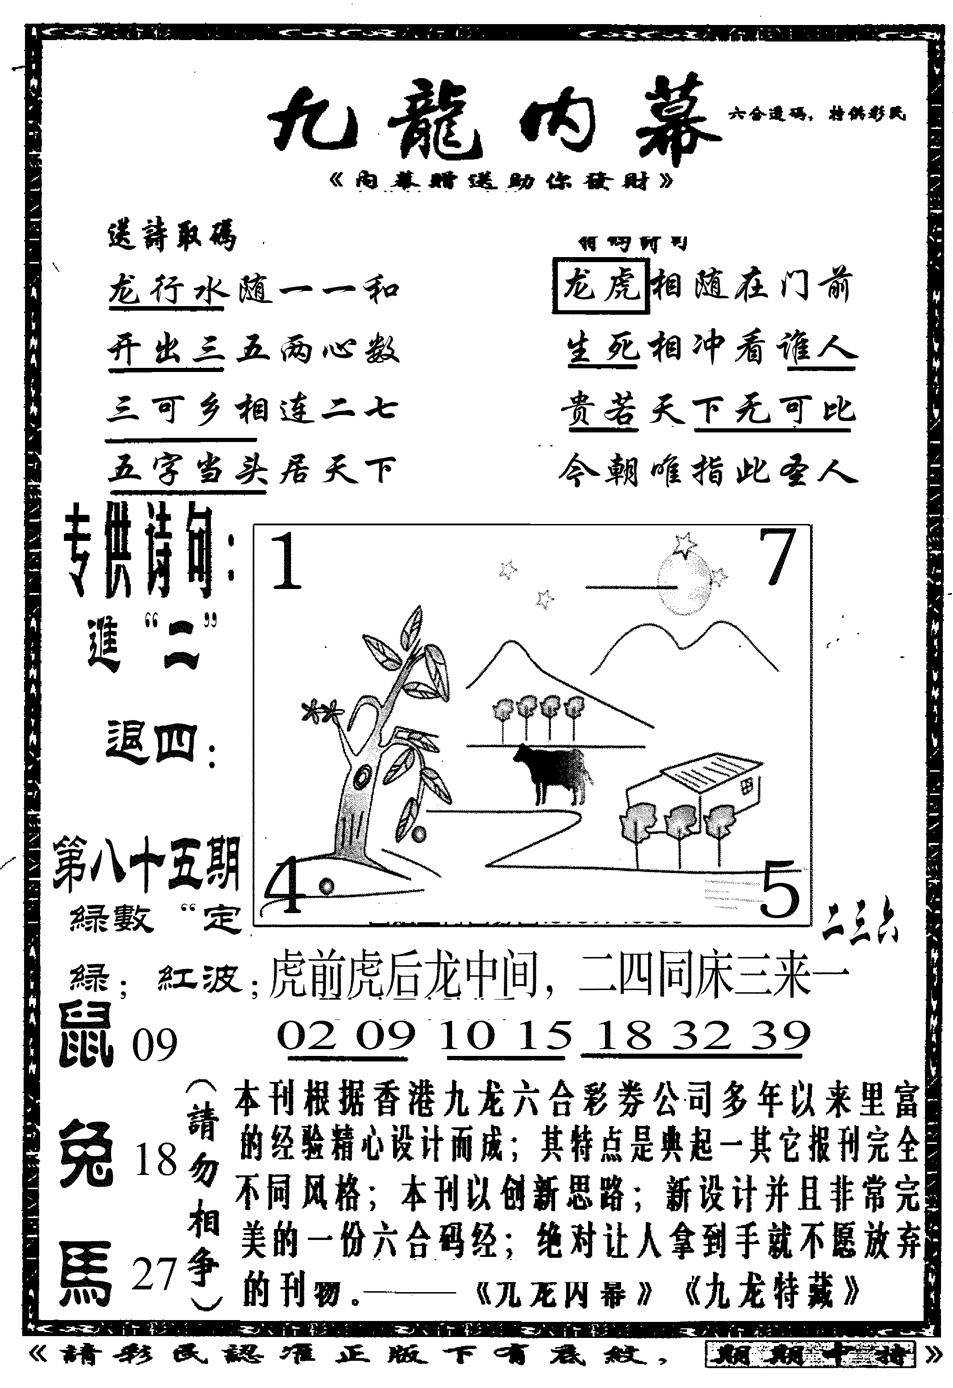 九龍内幕
六合透码，特供彩民
《內幕贈送助你發財》
送詩取碼
龙行水随一一和
开出三五两心数
三可乡相连二七
五字当头居天下
龙虎相随在门前
生死相冲看谁人
贵若天下无可比
今朝唯指此圣人
专供诗句：
進“二”
退四：
第八十五期
緑數“定
緑；紅波；
1
7
4
5
二三六
虎前虎后龙中间，二四同床三来一
02 09 10 15 18 32 39
鼠 09
兔 18
馬 27
（請勿相争）
本刊根据香港九龙六合彩券公司多年以来里富
的经验精心设计而成；其特点是典起一其它报刊完全
不同风格；本刊以创新思路；新设计并且非常完
美的一份六合码经；绝对让人拿到手就不愿放弃
的刊物。———《九龙内幕》《九龙特藏》
《請彩民認准正版下有底紋，期期中特》